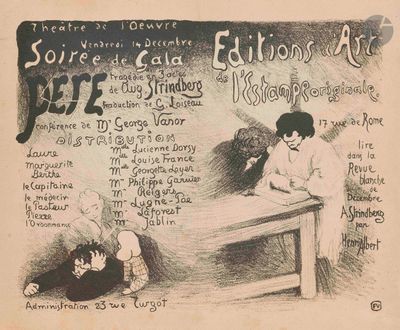 Théâtre de l'Oeuvre
Vendredi 14 Décembre
Soirée de Gala
PERE
tragédie en 3 actes
de Aug Strindberg
traduction de G. Loiseau
conférence de Mr George Vanor
DISTRIBUTION
Laure Mlle Lucienne Dorsy
Marguerite Mme Louise France
Berthe Mlle Georgette Loyer
le Capitaine Mr Philippe Garnier
le médecin Mr Rolgers
le Pasteur Mr Lugné-Poe
Pierre Mr Laforest
l'Ordonnance Mr Jablin
Administration 23 rue Turgot
Editions d'Art
de l'Estampe originale
17 rue de Rome
lire
dans la
Revue
blanche
de
Décembre
A. Strindberg
par
Henri Albert
FV